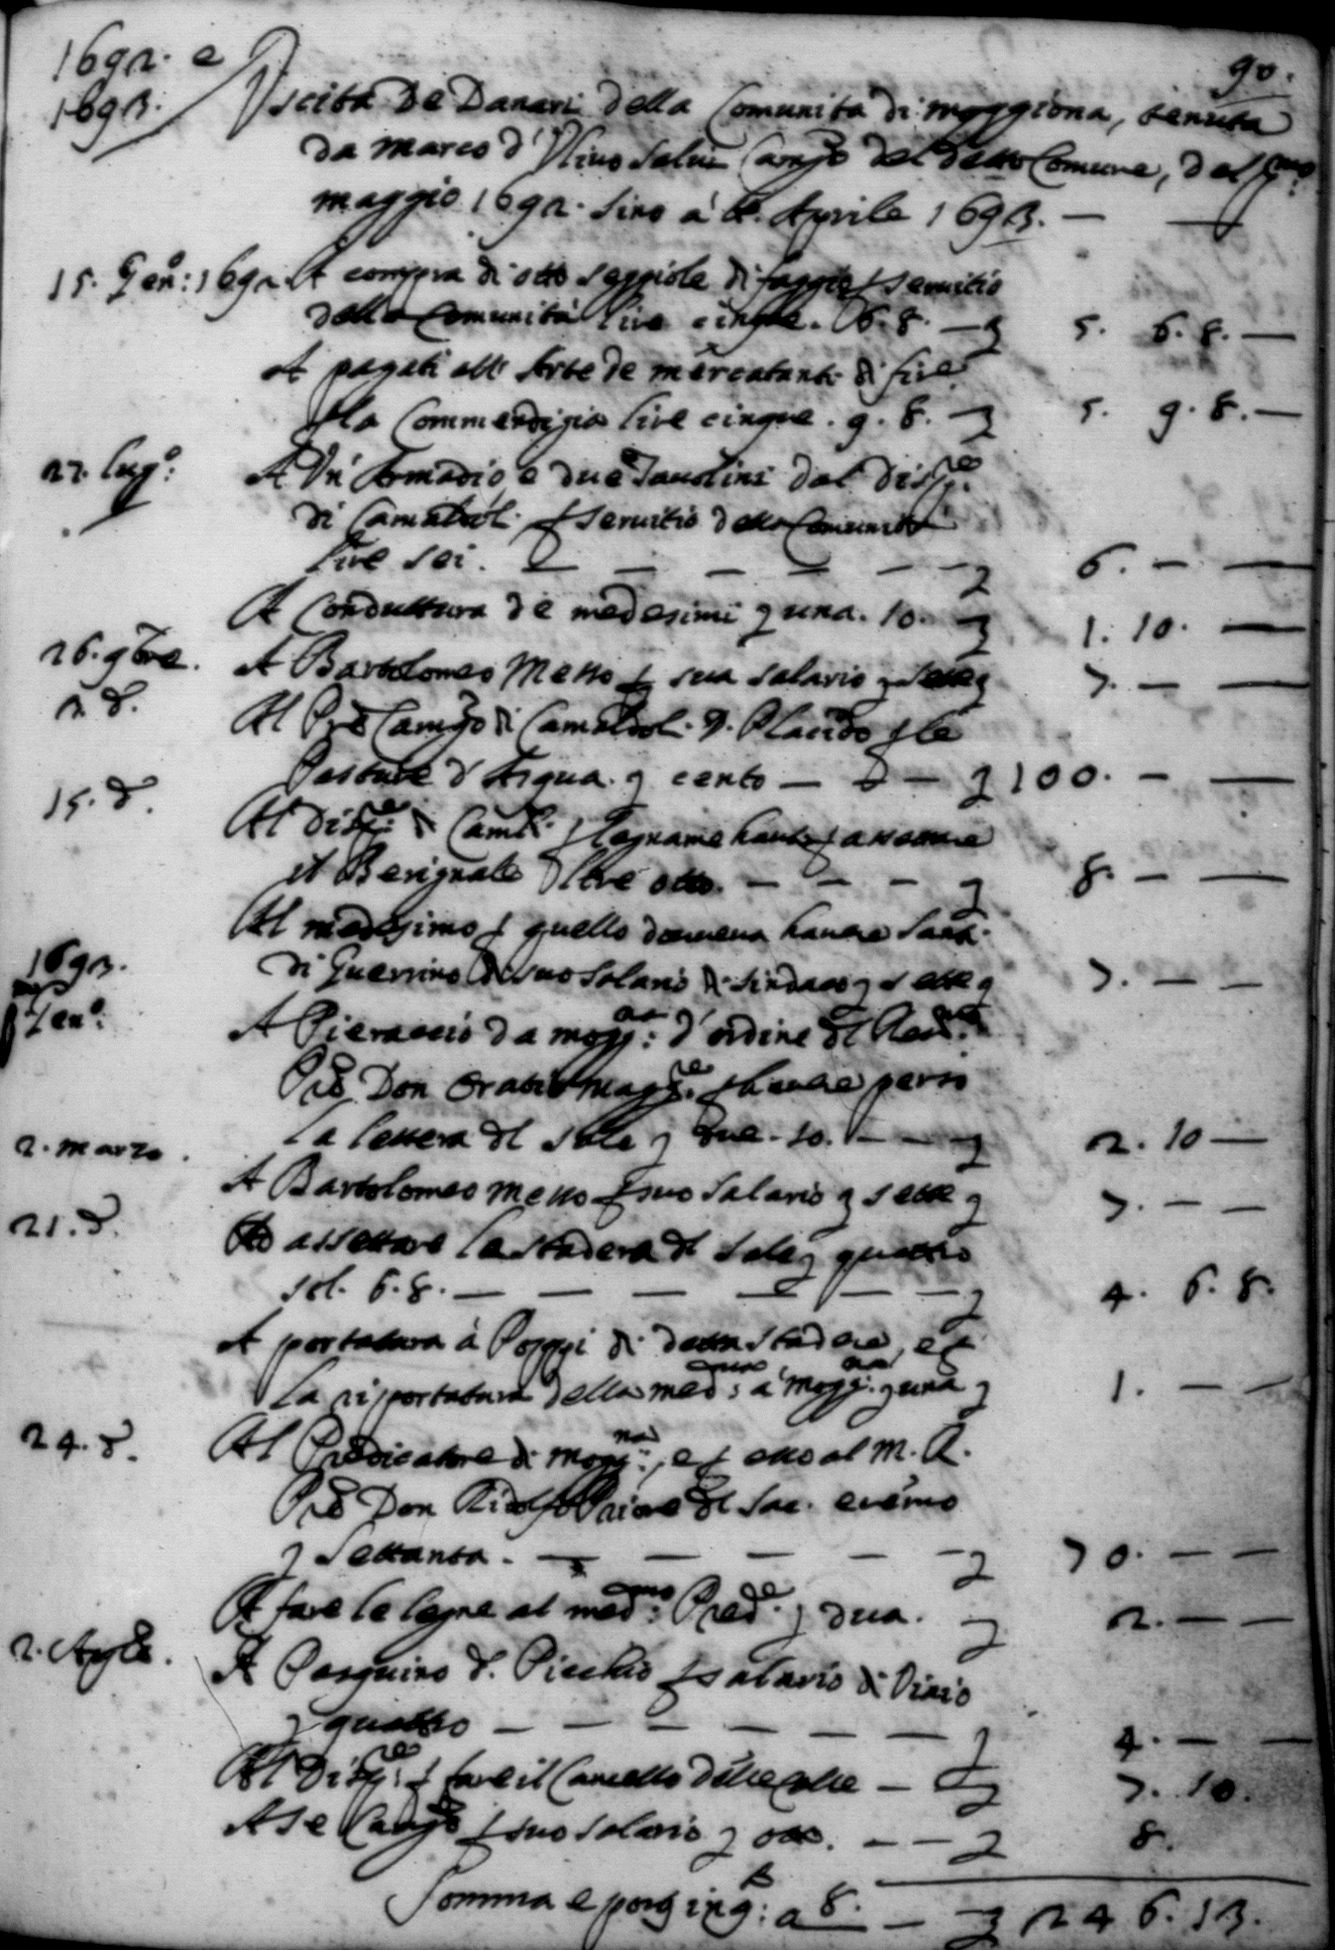 1692. e
1693.
90.
Uscita De Danari della Comunità di moggiona, tenuta
da Marco d' Ulivo Salvi Camgo del detto Comune, dal pmo
maggio 1692. sino a' Aprile 1693. —
15. Gen: 1692 A compra di otto seggiole di faggio p servitio
della Comunità lire cinque. 6. 8. — 5. 6. 8. —
A pagati all' Arte de mercatanti di fire
p la Commendigia lire cinque. 9. 8. — 5. 9. 8. —
27. lug: A Un' Armadio e due Tavolini dal disp.re
di Camaldoli p servitio della Comunità
lire sei. — — — — — 6. — —
A Conduttura de medesimi una. 10. — 1. 10. —
26. 9bre. A Bartolomeo Messo p suo salario sette 7. — —
2. d. Al Pre Camgo di Camaldoli D. Placido p le
Pasture d' Acqua cento — — 100. — —
15. d. Al Disp.re di Caml. p legname hauto p assettare
il otto. — — — 8. — —
Al medesimo p quello doveva havere Sant.
di Guerrino suo salario di sindaco sette 7. — —
1693.
p Gen: A Pieraccio da mogg.na: d' ordine del Rev.
Pre Don Oratio Magg.re p havere perso
la lettera del sale due. 10. — — 2. 10 —
2. marzo. A Bartolomeo Messo p suo salario sette 7. — —
21. d. Ad assettare la stadera del sale quattro
sol. 6. 8. — — — — — 4. 6. 8.
A portatura à Poppi di detta stadera, e p
la riportatura della med.ma: a' mogg.na una 1. — —
24. d. Al Predicatore di mogg.na, e p esso al M. R.
Pre Don Ridolfo Priore del Sac. eremo
settanta. — — — — 70. — —
A fare le legne al med.mo: Pred.re dua. 2. — —
2. Aple. A Pasquino d. Picchio p salario di Viaio
quattro — — — — — 4. — —
Al Disp.re: p fare il Cancello — 7. 10.
A se Camgo p suo salario otto. — — 8.
Somma e porg ing: a 8. — 246. 13.